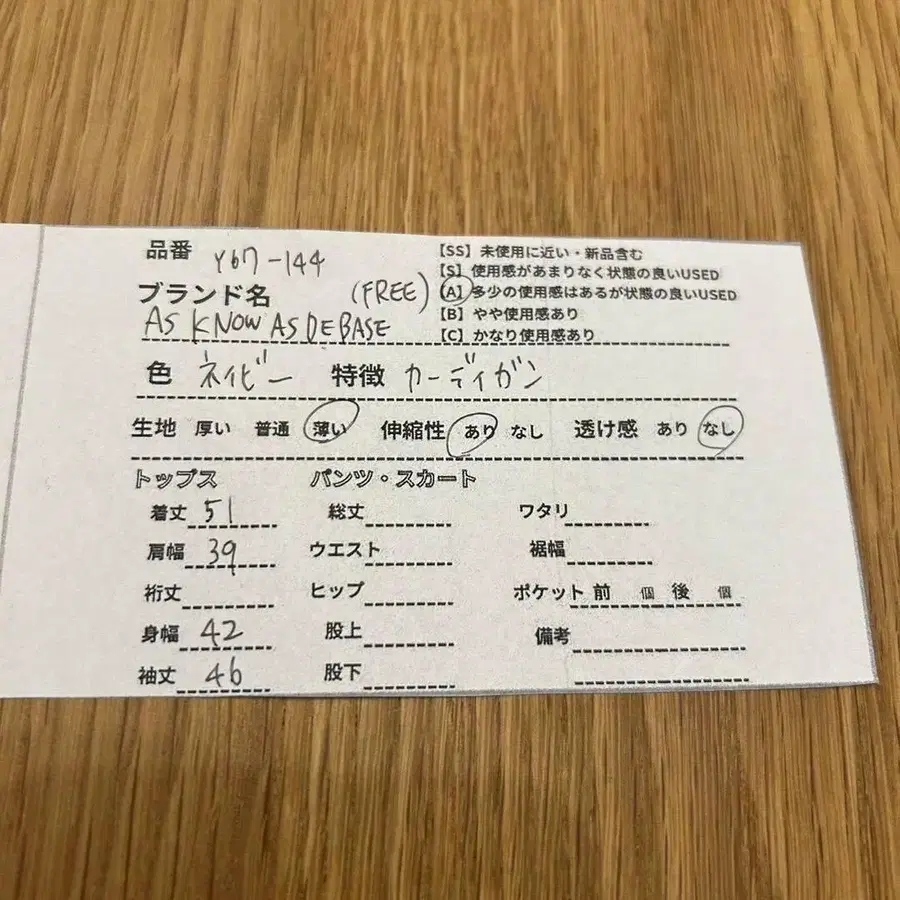 品番 Y67-144
【SS】未使用に近い・新品含む
【S】使用感があまりなく状態の良いUSED
【A】多少の使用感はあるが状態の良いUSED
【B】やや使用感あり
【C】かなり使用感あり
ブランド名 (FREE)
AS KNOW AS DE BASE
色 ネイビー 特徴 カーディガン
生地 厚い 普通 薄い 伸縮性 あり なし 透け感 あり なし
トップス パンツ・スカート
着丈 51 総丈 ワタリ
肩幅 39 ウエスト 裾幅
裄丈 ヒップ ポケット 前 個 後 個
身幅 42 股上 備考
袖丈 46 股下